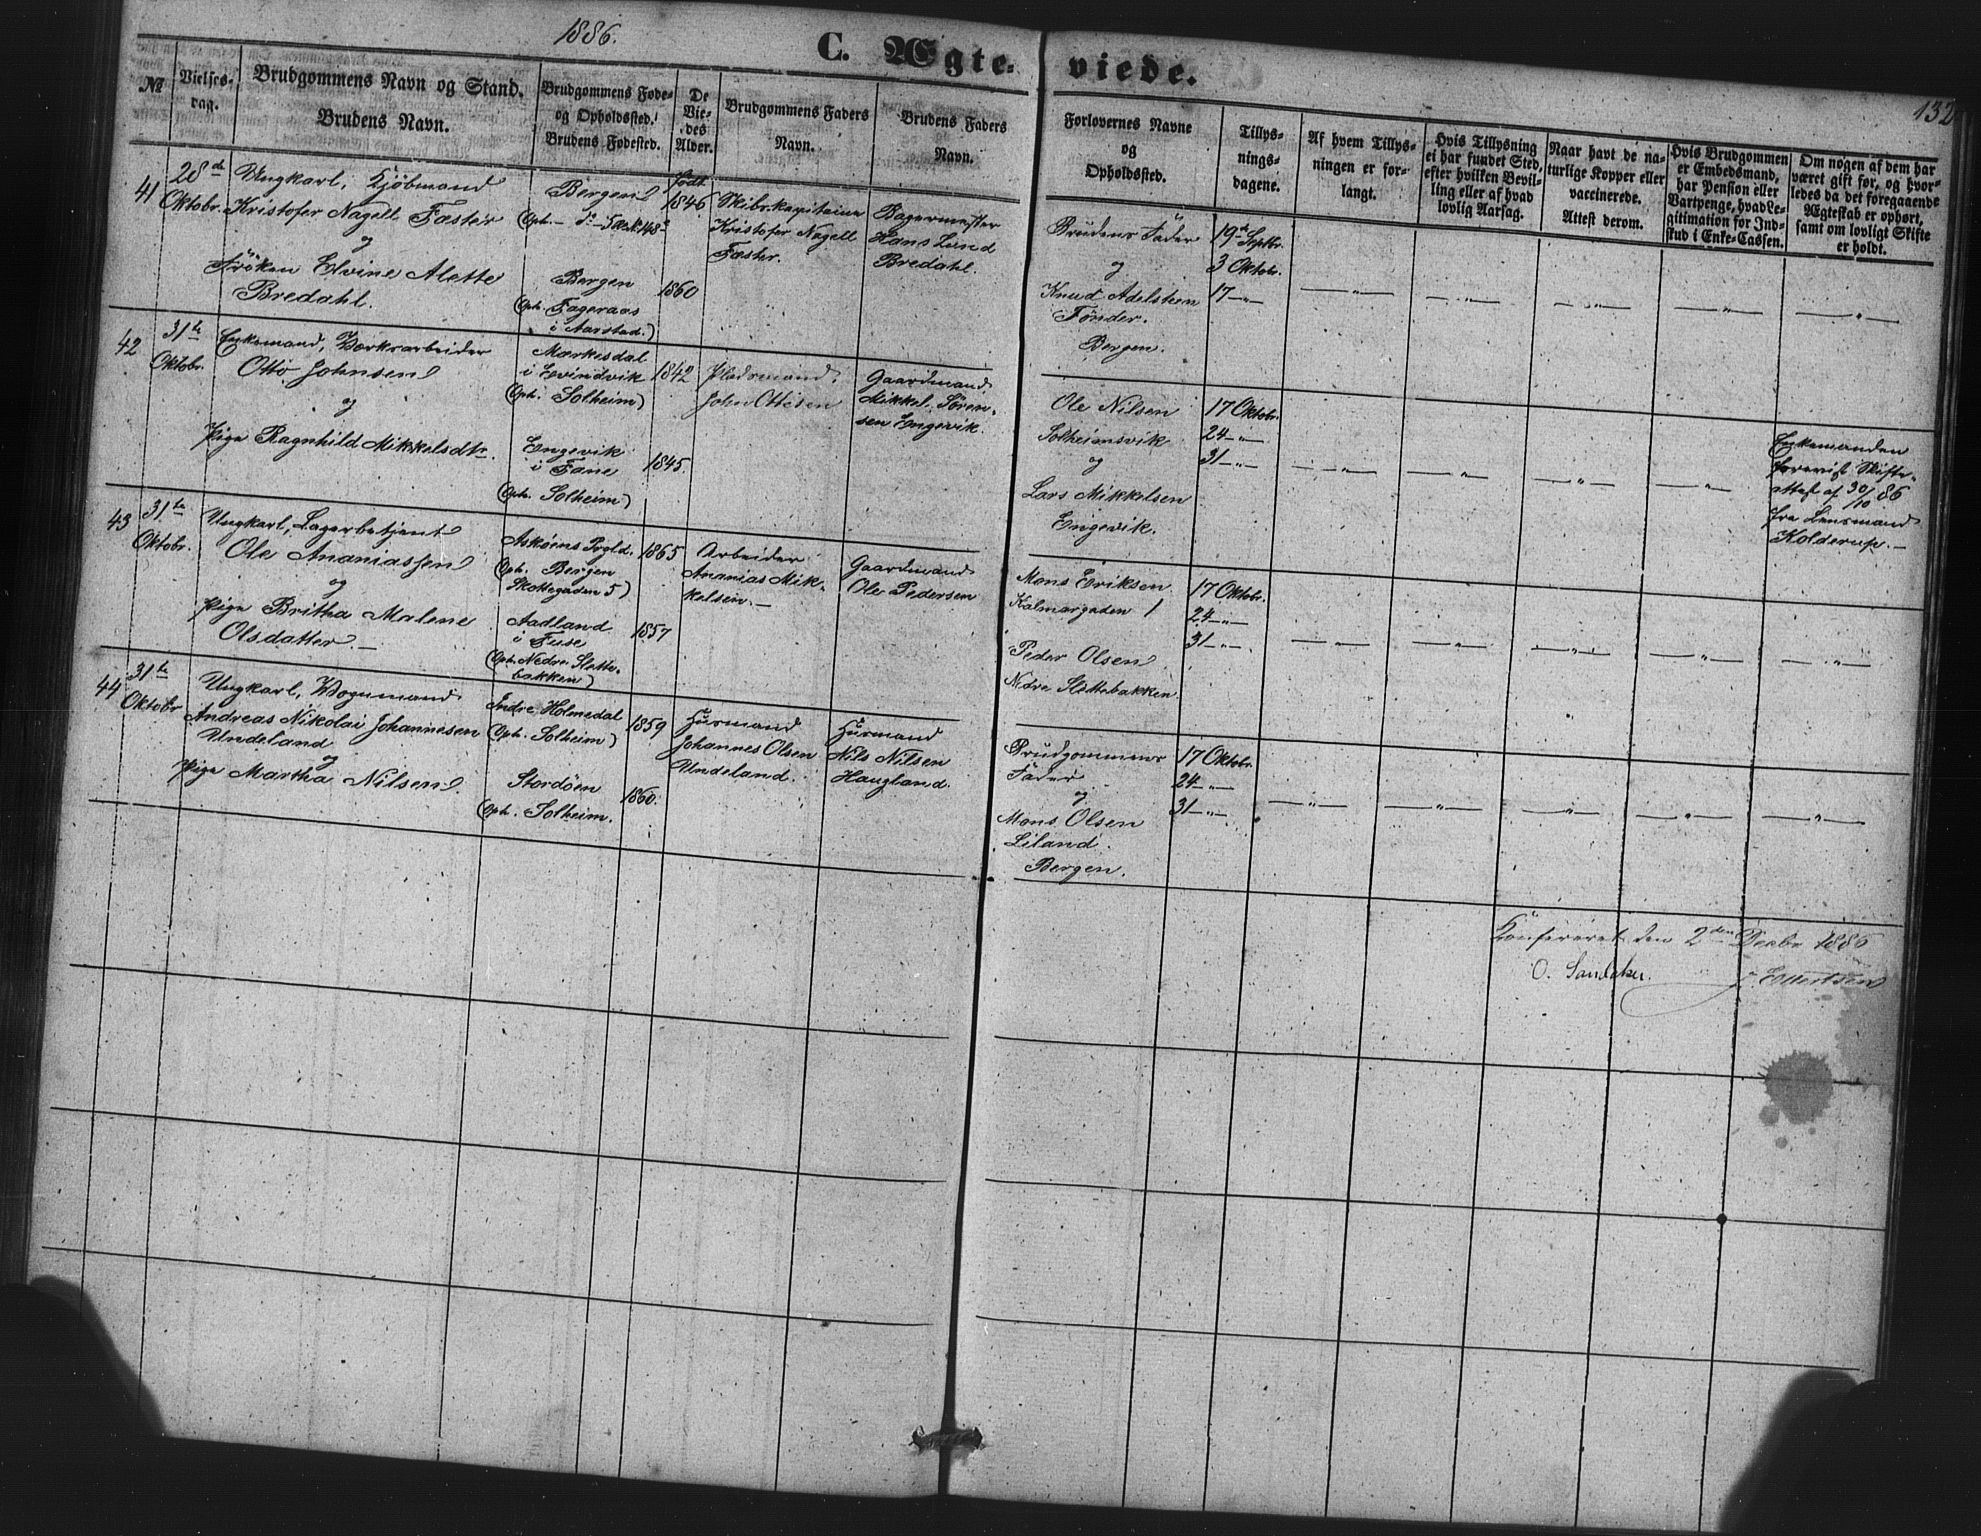 1886.
C. Ægteviede.
132
№
Vielsesdag.
Brudgommens Navn og Stand.
Brudens Navn.
Brudgommens Føde- og Opholdssted.
Brudens Fødested.
De Viedes Alder.
Brudgommens Faders Navn.
Brudens Faders Navn.
Forlovernes Navne og Opholdssted.
Tillysningsdagene.
Af hvem Tillysningen er forlangt.
Hvis Tillysning ei har fundet Sted, efter hvilken Bevilling eller af hvad lovlig Aarsag.
Naar havt de naturlige Kopper eller vaccinerede. Attest derom.
Hvis Brudgommen er Embedsmand, har Pension eller Vartpenge, hvad Legitimation for Indskud i Enke-Cassen.
Om nogen af dem har været gift før, og hvorledes da det foregaaende Ægteskab er ophørt, samt om lovligt Skifte er holdt.
41
28de
Oktobr.
Ungkarl, Kjøbmand
Kristofer Nagell Fæster
og
Frøken Elvine Alette
Bredahl.
Bergen
Oph. - do -
Bergen
(Oph. Fageraas
i Aarstad.)
født
1846
1860
Skibskapitaine
Kristofer Nagell
Fæster.
Bagermester
Hans Lund
Bredahl.
Brudens Fader
og
Knud Adelsteen
Tønder.
Bergen.
19de Septbr.
3 Oktobr.
17 - " -
42
31te
Oktobr.
Enkemand, Værksarbeider
Otto Johnsen
og
Pige Ragnhild Mikkelsdtr.
Mærkesdal
i Evindvik
(Oph. Solheim)
Engevik
i Fane
(Oph. Solheim)
1842
1845.
Pladsmand
John Ottesen
Gaardmand
Mikkel Søren-
sen Engevik.
Ole Nilsen
Solheimsvik
og
Lars Mikkelsen
Engevik.
17 Oktobr.
24 - " -
31 - " -
Enkemanden
forevist Skifte-
attest af 30/10 86
fra Lensmand
Kolderup. -
43
31te
Oktobr.
Ungkarl, Lagerbetjent
Ole Ananiassen
og
Pige Britha Malene
Olsdatter. -
Askøens Prgld.
(Oph. Bergen
Skottegaden 5)
Aadland
i Fuse
(Oph. Nedre Slette-
bakken)
1865
1857
Arbeider
Ananias Mik-
kelsen. -
Gaardmand
Ole Pedersen
Mons Eriksen
Kalmargaden 1
Peder Olsen
Nedre Slettebakken
17 Oktobr.
24 - " -
31 - " -
44
31te
Oktobr
Ungkarl, Vognmand
Andreas Nikolai Johannesen
Undeland
og
Pige Martha Nilsen
Indre Holmedal
(Oph. Solheim)
Stordøen
(Oph. Solheim.
1859
1860.
Husmand
Johannes Olsen
Undeland.
Husmand
Nils Nilsen
Haugland.
Brudgommens
Fader
og
Mons Olsen
Liland.
Bergen.
17 Oktobr.
24 - " -
31 - " -
Konfereret den 2den Decbr 1886
O. Sandaker.
J. Ellertsen